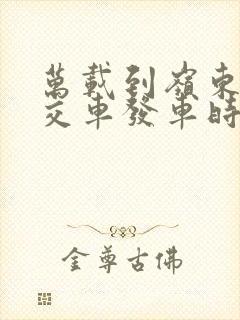 萬載到嶺東
交車發車時
金尊古佛